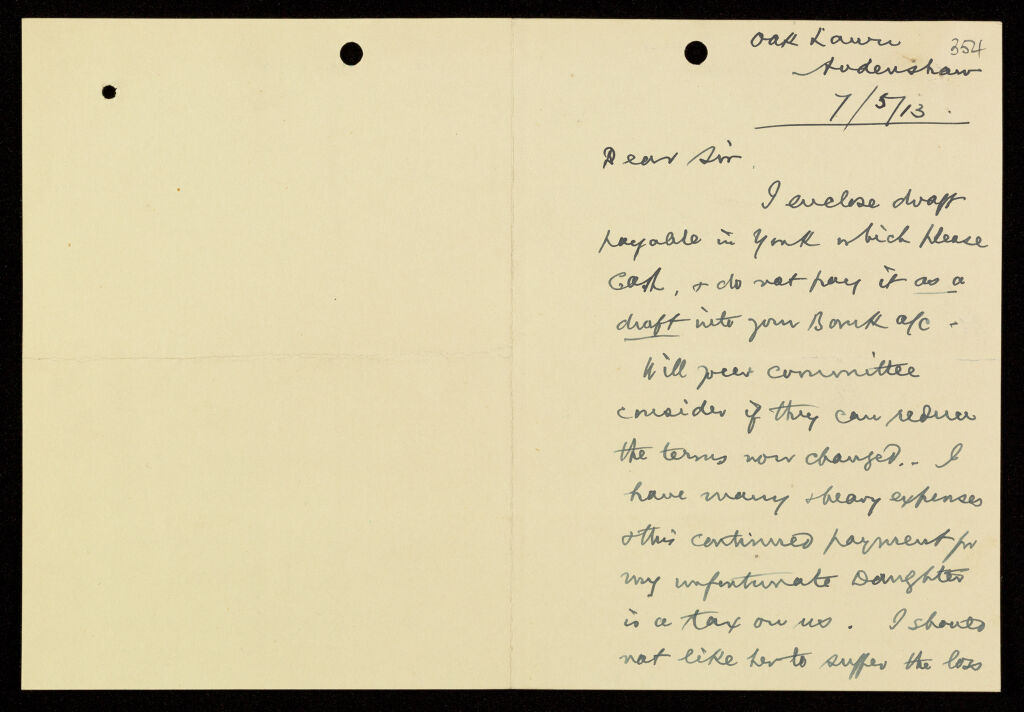 Oak Lawn
354
Audenshaw
7/5/13.
Dear Sir
I enclose draft
payable in York which please
Cash, & do not pay it as a
draft into your Bank a/c -
Will your committee
consider if they can reduce
the terms now charged.. I
have many & heavy expenses
& this continued payment for
my unfortunate Daughter
is a tax on us. I should
not like her to suffer the loss